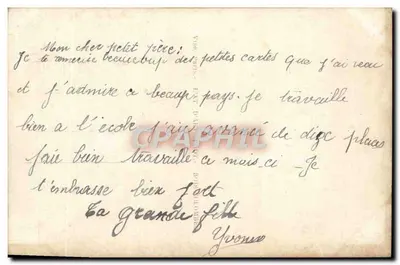 Mon cher petit père!
Je te remercie beaucoup des petites cartes que j'ai reau
et j'admire ce beaux pays. je travaille
bien a l'école j'ais de dize places
j'aie bien travaillé ce mois-ci - Je
t'embrasse bien fort
ta grande fille
Yvonne
CPAPHIL